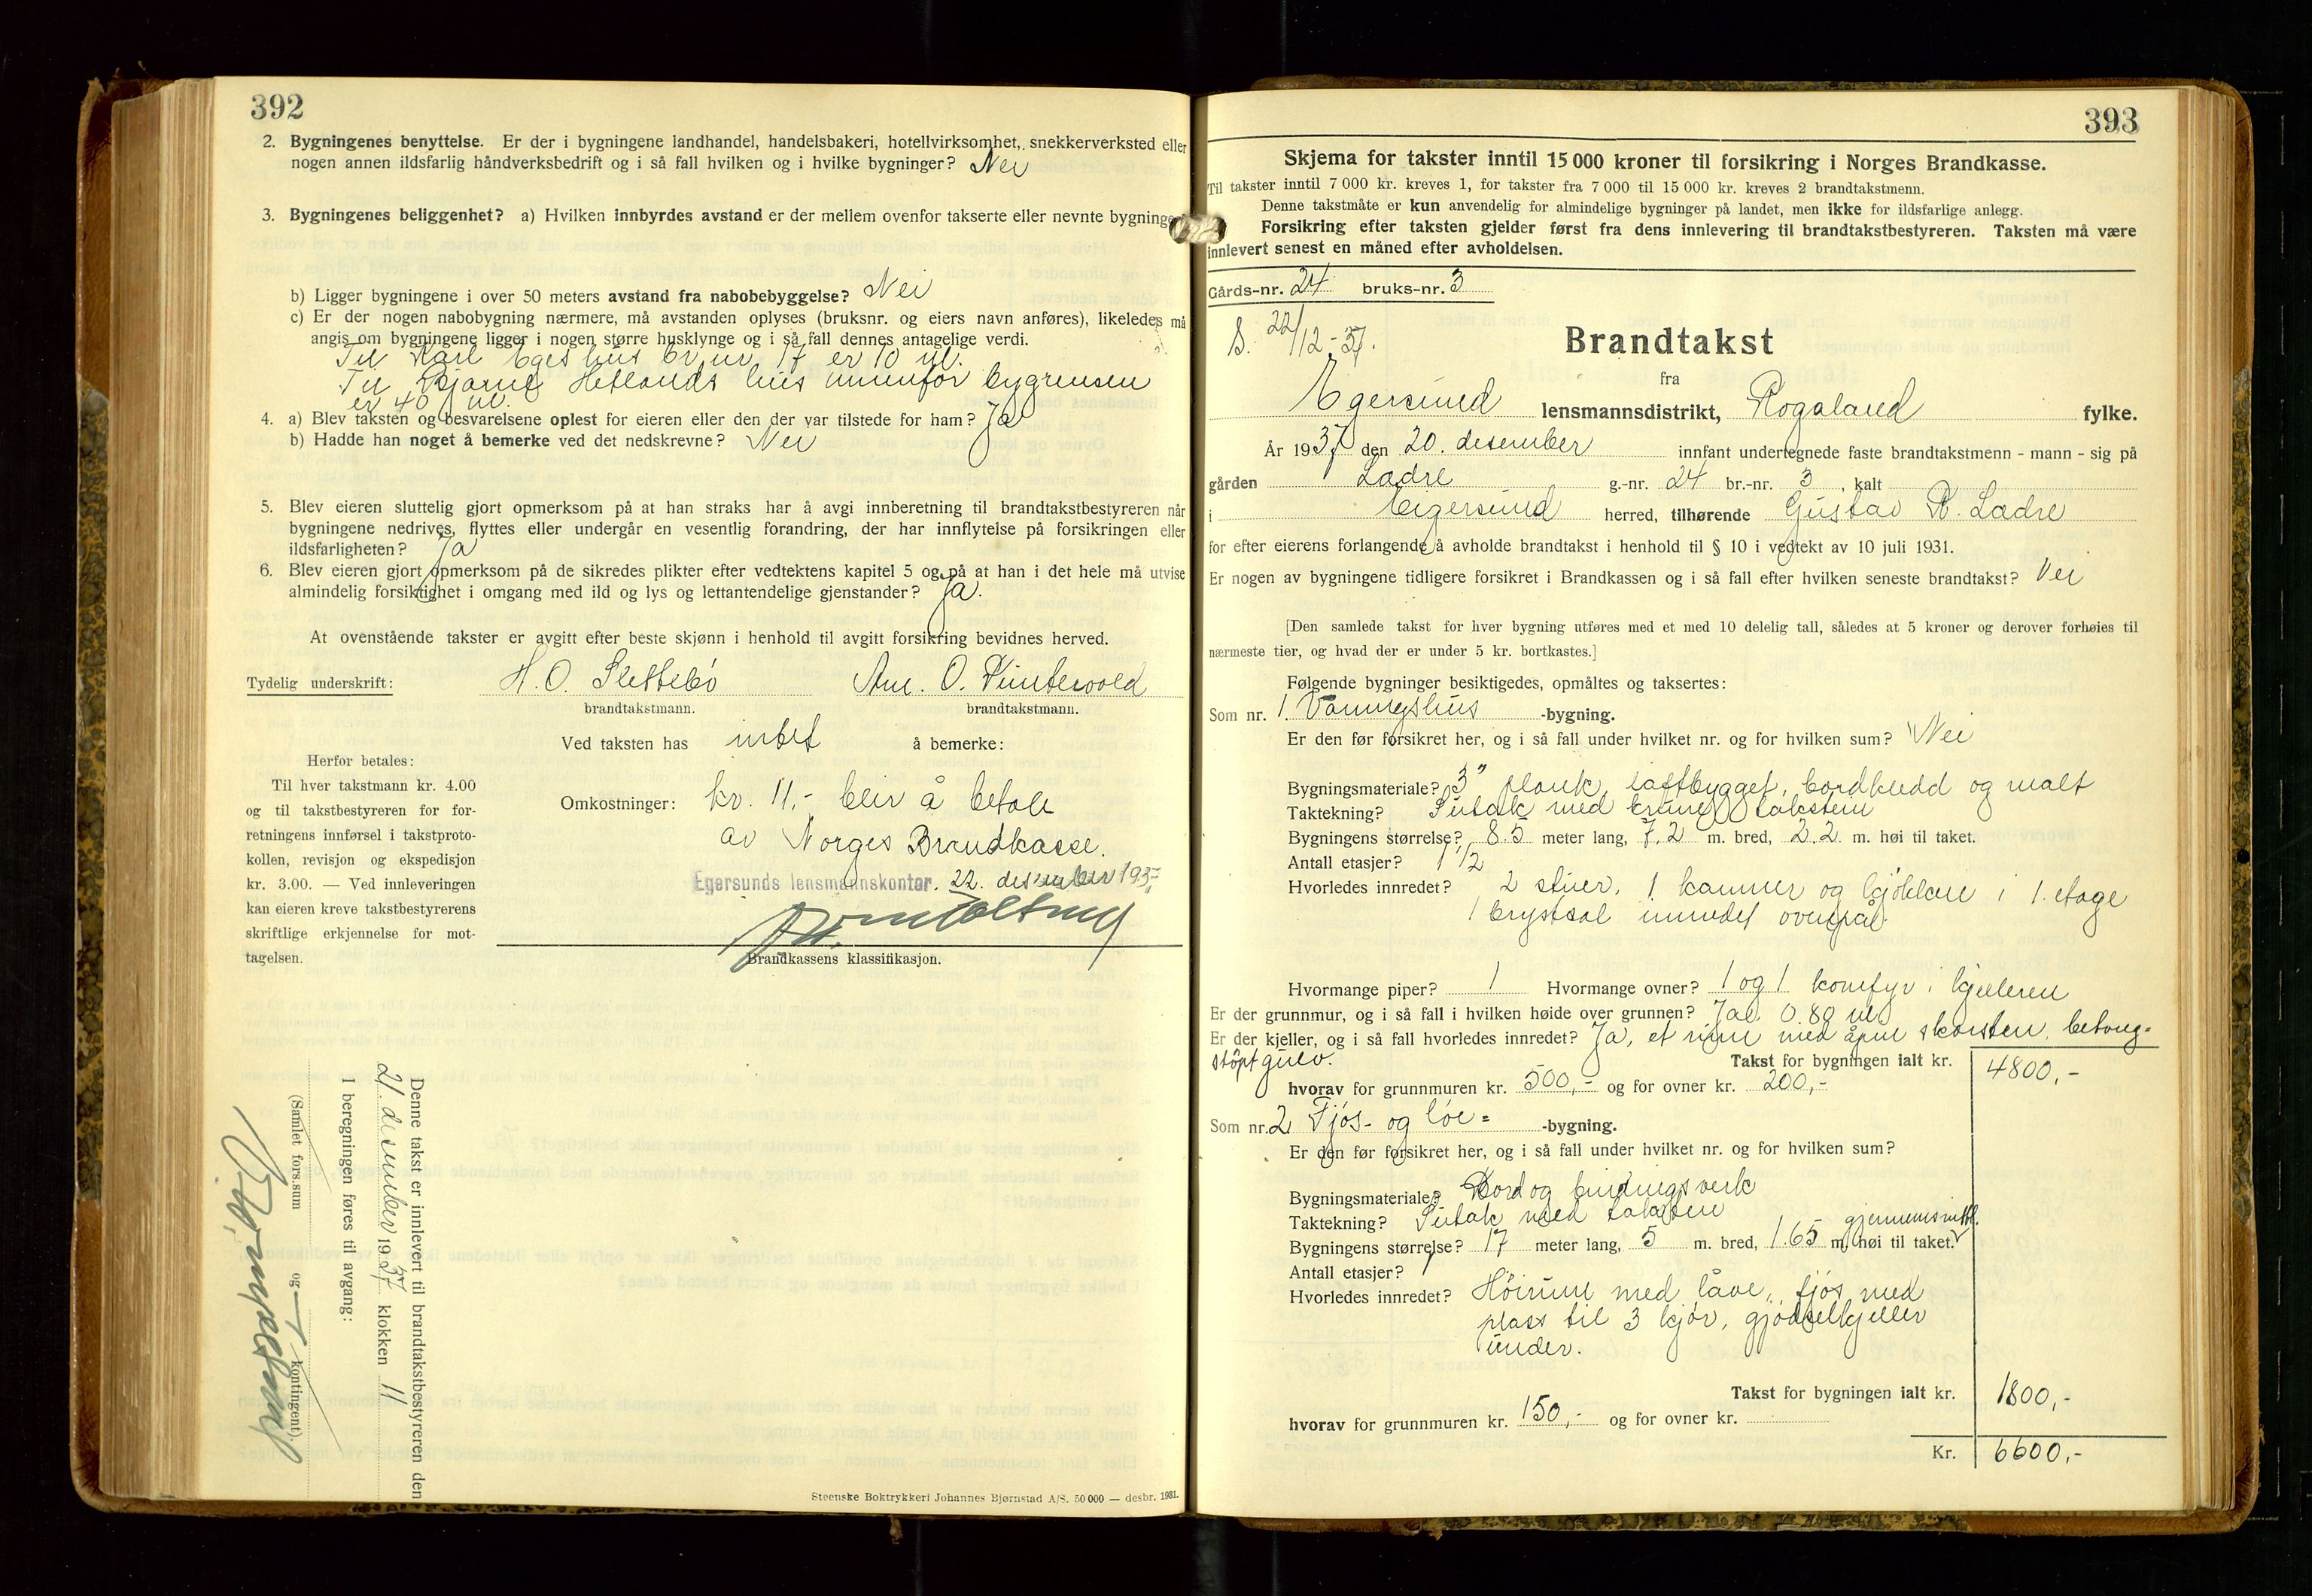 392
2. Bygningenes benyttelse. Er der i bygningene landhandel, handelsbakeri, hotellvirksomhet, snekkerverksted eller
nogen annen ildsfarlig håndverksbedrift og i så fall hvilken og i hvilke bygninger? Nei
3. Bygningenes beliggenhet? a) Hvilken innbyrdes avstand er der mellem ovenfor takserte eller nevnte bygninger
b) Ligger bygningene i over 50 meters avstand fra nabobebyggelse? Nei
c) Er der nogen nabobygning nærmere, må avstanden oplyses (bruksnr. og eiers navn anføres), likeledes må
angis om bygningene ligger i nogen større husklynge og i så fall dennes antagelige verdi.
Til Karl Eges hus br.nr. 17 er 10 m.
Til Bjarne Hetlands hus innenfor bygrensen
er 40 m.
4. a) Blev taksten og besvarelsene oplest for eieren eller den der var tilstede for ham? Ja
b) Hadde han noget å bemerke ved det nedskrevne? Nei
5. Blev eieren sluttelig gjort opmerksom på at han straks har å avgi innberetning til brandtakstbestyreren når
bygningene nedrives, flyttes eller undergår en vesentlig forandring, der har innflytelse på forsikringen eller
ildsfarligheten? Ja
6. Blev eieren gjort opmerksom på de sikredes plikter efter vedtektens kapitel 5 og på at han i det hele må utvise
almindelig forsiktighet i omgang med ild og lys og lettantendelige gjenstander? Ja.
At ovenstående takster er avgitt efter beste skjønn i henhold til avgitt forsikring bevidnes herved.
Tydelig underskrift: H. O. Slettebö O.
brandtakstmann. brandtakstmann.
Ved taksten has intet å bemerke:
Herfor betales:
Til hver takstmann kr. 4.00
og til takstbestyreren for for-
retningens innførsel i takstproto-
kollen, revisjon og ekspedisjon
kr. 3.00. — Ved innleveringen
kan eieren kreve takstbestyrerens
skriftlige erkjennelse for mot-
tagelsen.
Omkostninger: kr. 11,- blir å betale
av Norges Brandkasse.
Egersunds lensmannskontor, 22. desember 1937
Brandkassens klassifikasjon.
Denne takst er innlevert til brandtakstbestyreren den
21. desember 1937 klokken 11
I beregningen føres til avgang:
(Samlet fors.sum og kontingent).
Steenske Boktrykkeri Johannes Bjørnstad A/S. 50 000 — desbr. 1931.
393
Skjema for takster inntil 15 000 kroner til forsikring i Norges Brandkasse.
Til takster inntil 7 000 kr. kreves 1, for takster fra 7 000 til 15 000 kr. kreves 2 brandtakstmenn.
Denne takstmåte er kun anvendelig for almindelige bygninger på landet, men ikke for ildsfarlige anlegg.
Forsikring efter taksten gjelder først fra dens innlevering til brandtakstbestyreren. Taksten må være
innlevert senest en måned efter avholdelsen.
Gårds-nr. 24 bruks-nr. 3
S. 22/12-37.
Brandtakst
fra
Egersund lensmannsdistrikt, Rogaland fylke.
År 1937 den 20. desember innfant undertegnede faste brandtakstmenn - mann - sig på
gården Ladre g.-nr. 24 br.-nr. 3, kalt
i Eigersund herred, tilhørende Gustav R. Ladre
for efter eierens forlangende å avholde brandtakst i henhold til § 10 i vedtekt av 10 juli 1931.
Er nogen av bygningene tidligere forsikret i Brandkassen og i så fall efter hvilken seneste brandtakst? Nei
[Den samlede takst for hver bygning utføres med et med 10 delelig tall, således at 5 kroner og derover forhøies til
nærmeste tier, og hvad der er under 5 kr. bortkastes.]
Følgende bygninger besiktigedes, opmåltes og taksertes:
Som nr. 1. Vaaningshus -bygning.
Er den før forsikret her, og i så fall under hvilket nr. og for hvilken sum? Nei
Bygningsmateriale? 3" plank, laftbygget, bordkledd og malt
Taktekning? Sutak med takstein
Bygningens størrelse? 8.5 meter lang, 7.2 m. bred, 2.2 m. høi til taket.
Antall etasjer? 1 1/2
Hvorledes innredet? 2 stuer, 1 kammer og kjökken i 1. etage
1 krystsal innredet ovenpå.
Hvormange piper? 1 Hvormange ovner? 1 og 1 komfyr i kjelleren
Er der grunnmur, og i så fall i hvilken høide over grunnen? Ja. 0.80 m
Er der kjeller, og i så fall hvorledes innredet? Ja, et rum med åpen skorsten, betong-
støpt gulv. Takst for bygningen ialt kr. 4800,-
hvorav for grunnmuren kr. 500,- og for ovner kr. 200,-
Som nr. 2 Fjøs- og löe= -bygning.
Er den før forsikret her, og i så fall under hvilket nr. og for hvilken sum?
Bygningsmateriale? Bord og bindingsverk
Taktekning? Sutak med takstein
Bygningens størrelse? 17 meter lang, 5 m. bred, 1.65 m. høi til taket. gjennemsnittl.
Antall etasjer? 1
Hvorledes innredet? Höirum med låve, fjös med
plass til 3 kjör, gjödselkjeller
under.
Takst for bygningen ialt kr. 1800,-
hvorav for grunnmuren kr. 150,- og for ovner kr.
Kr. 6600,-